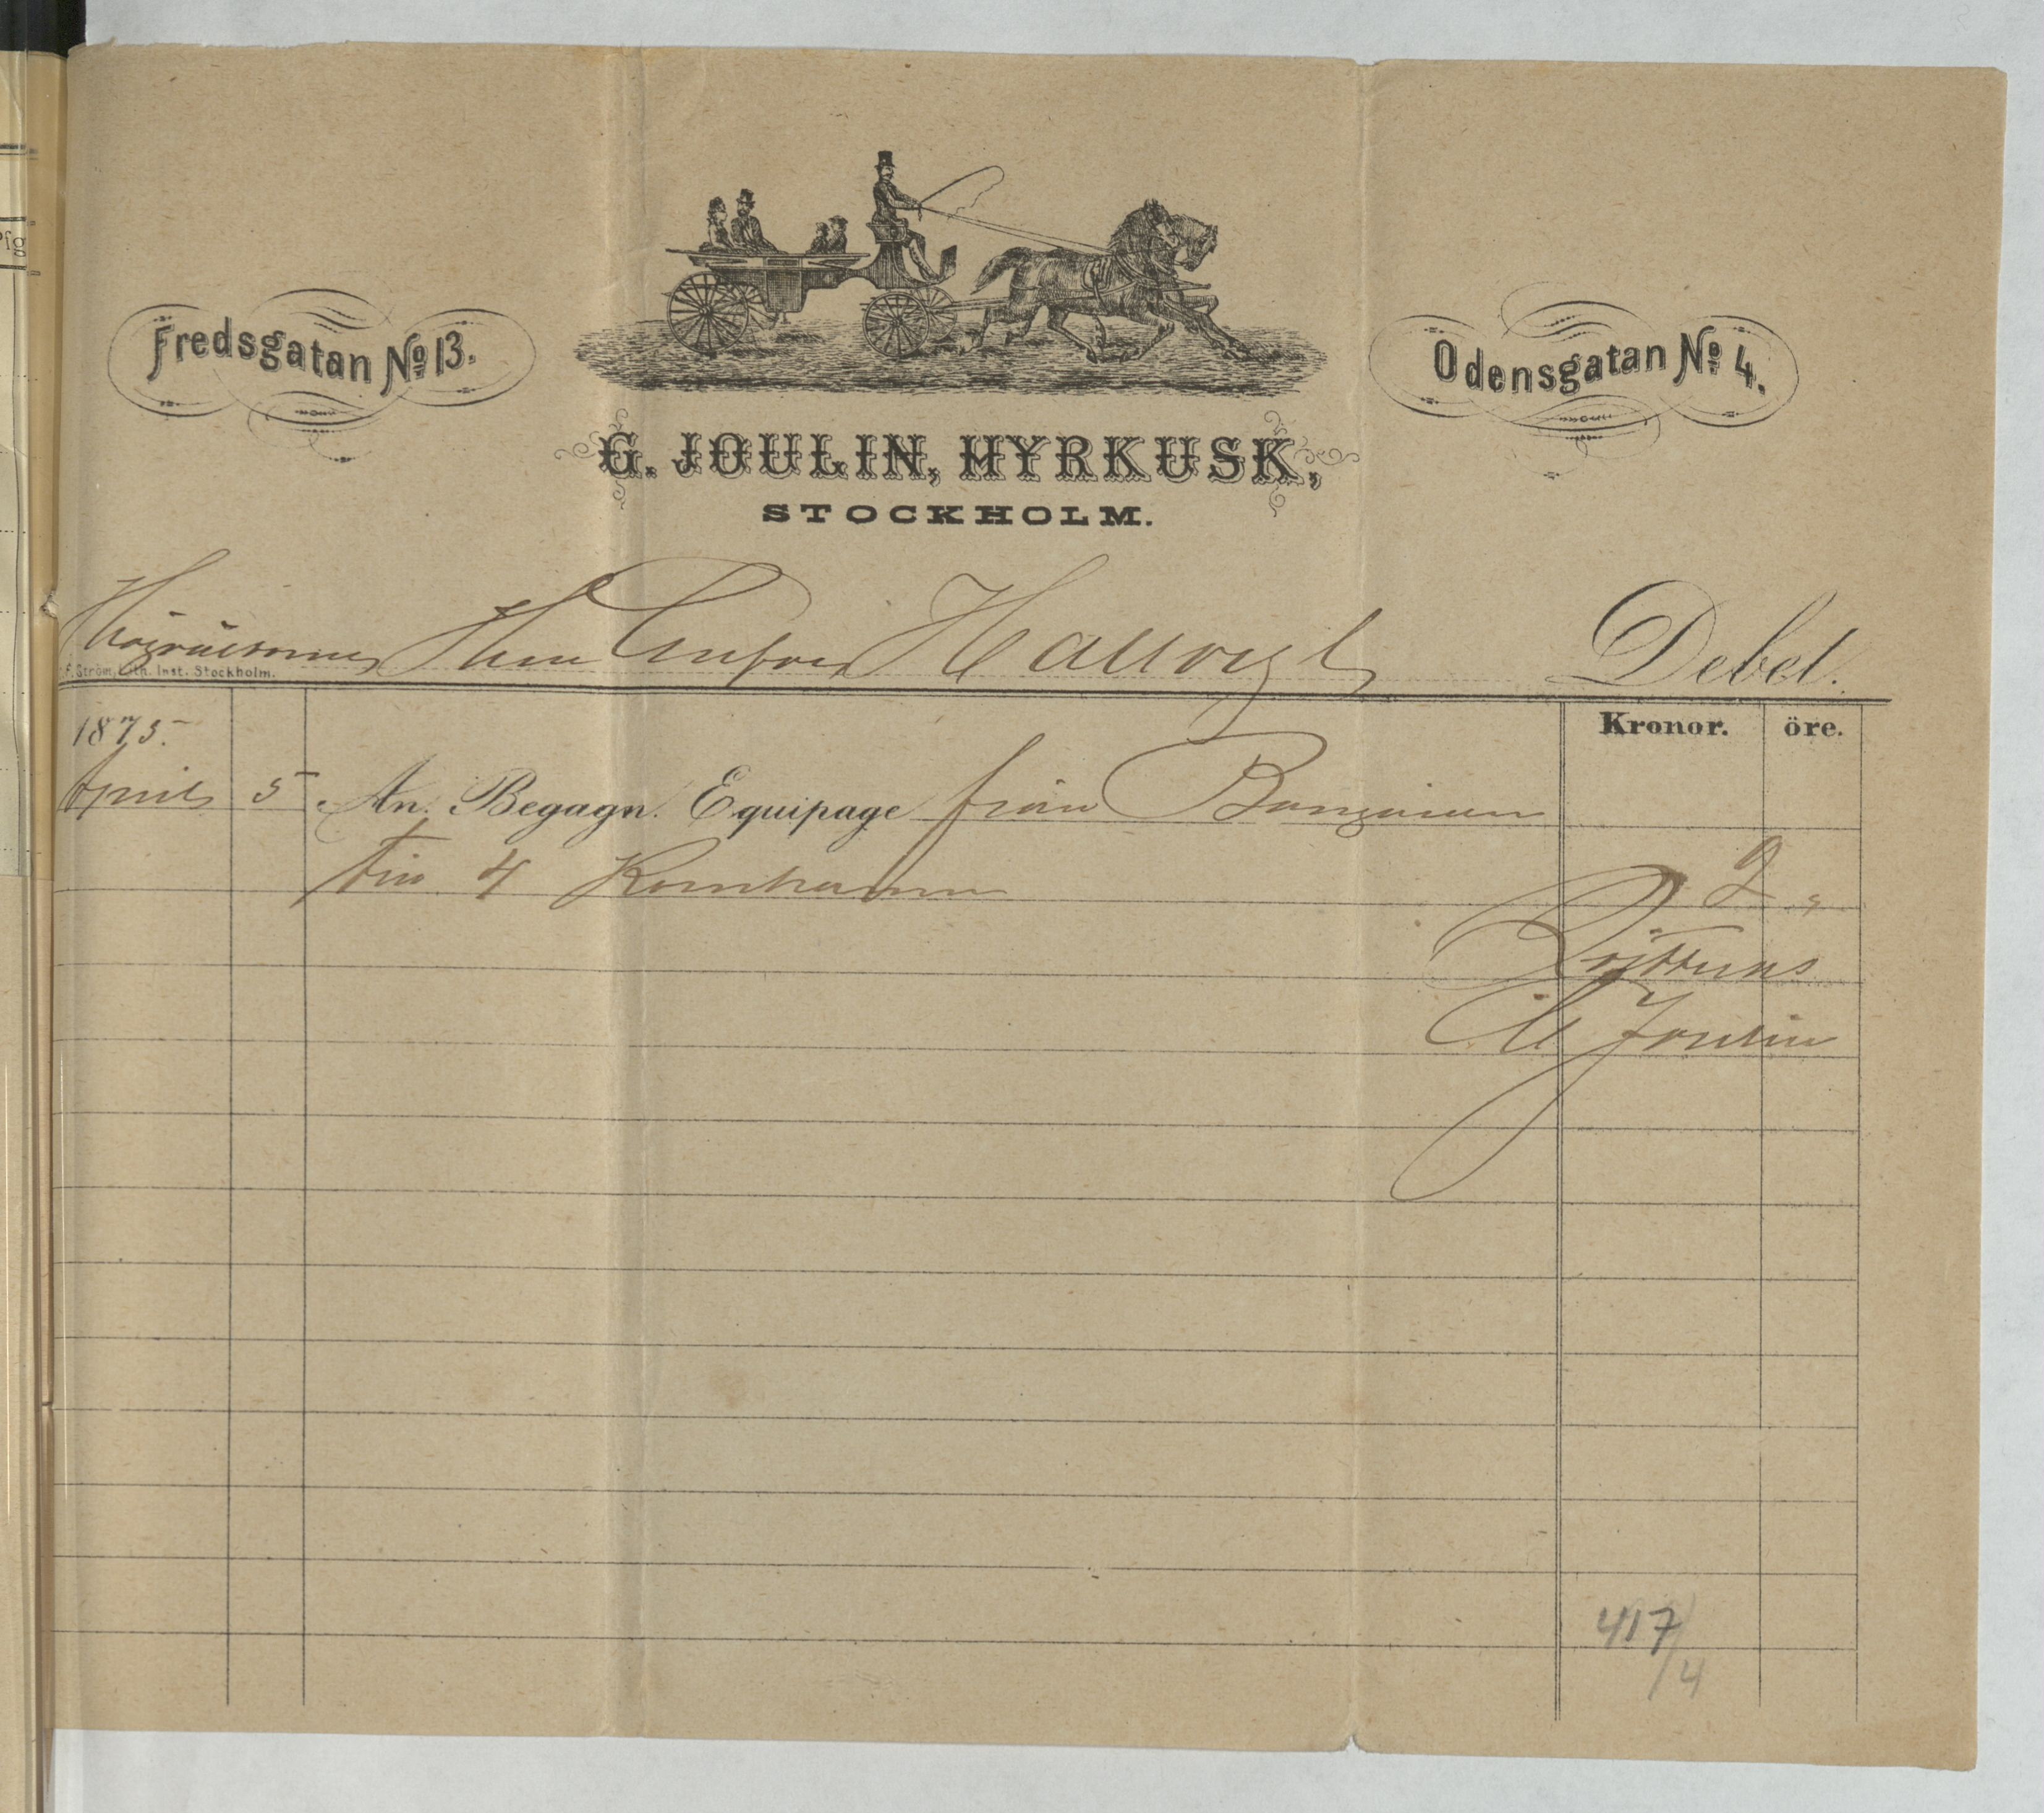 Fredsgatan No 13.
Odensgatan No 4.
G. JOULIN, HYRKUSK,
STOCKHOLM.
Herr Hallwyl Debet.
F. Ström, Lith. Inst. Stockholm.
1875. Kronor. öre.
April 5 An. Begagn. Equipage från Bangården
till 4 Kornhamn 2 "
Qvitteras
G Joulin
417/4
Pfg